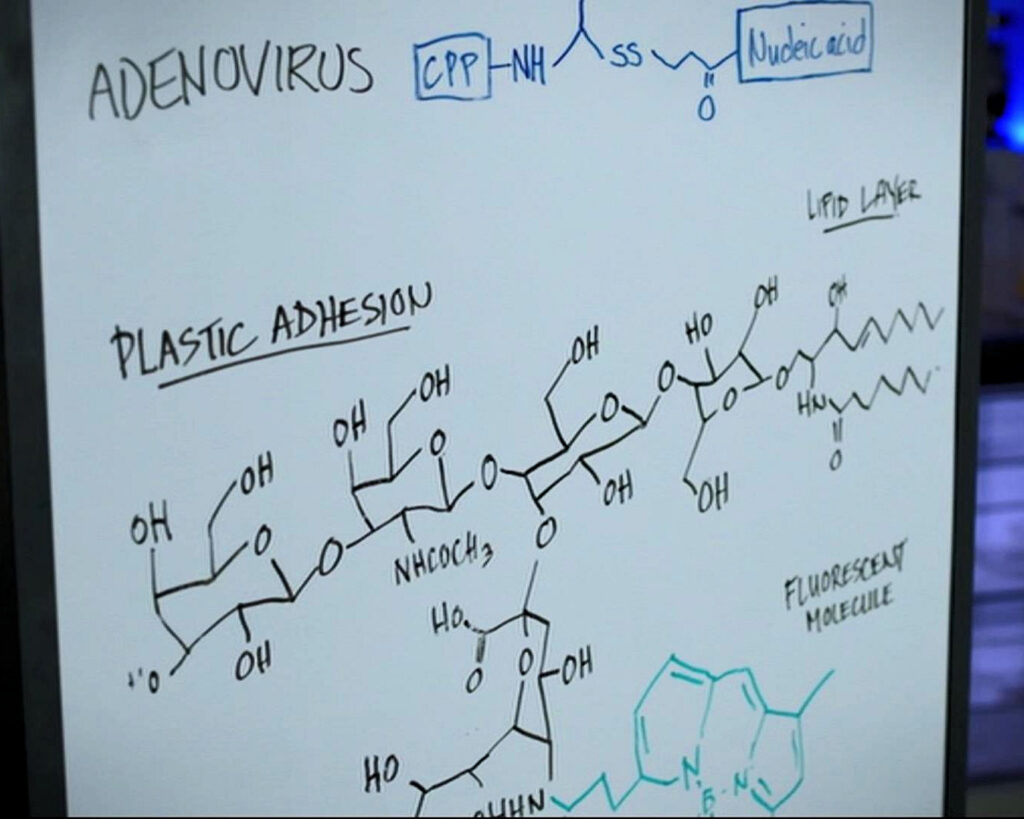 ADENOVIRUS
CPP-NH SS Nucleic acid
O
LIPID LAYER
PLASTIC ADHESION
OH
OH
HO
OH
OH
OH
O
O
O
HN
O
O
OH
OH
O
O
OH
OH
O
O
O
NHCOCH3
FLUORESCENT
MOLECULE
HO
O
OH
O
O
OH
N
N
B
HO
HN